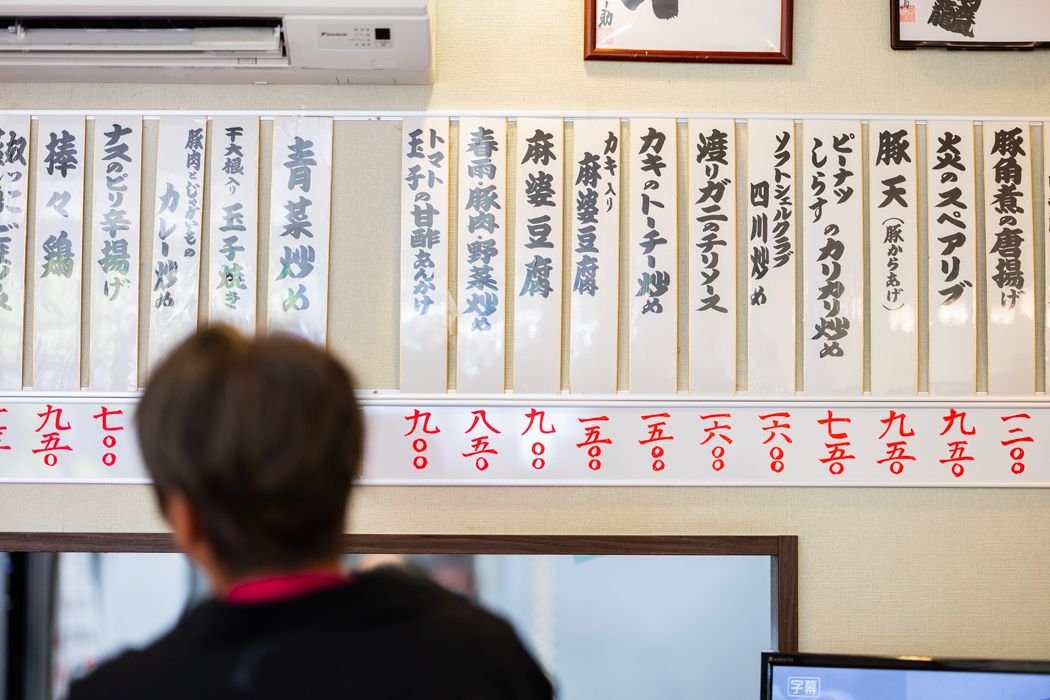 豚角煮の唐揚げ
炎のスペアリブ
豚天(豚からあげ)
ピーナツ
しらすのカリカリ炒め
ソフトシェルクラブ
四川炒め
渡りガニのチリソース
カキのトーチー炒め
カキ入り
麻婆豆腐
麻婆豆腐
春雨・豚肉・野菜炒め
トマト
玉子の甘酢あんかけ
青菜炒め
干大根入り玉子焼き
豚肉とじゃがいもの
カレー炒め
ナスのピリ辛揚げ
棒々鶏
一二〇〇
九五〇
九五〇
七五〇
一六〇〇
一六〇〇
一五〇
一五〇
九〇〇
八五〇
九〇〇
七〇〇
九五〇
DAIKIN
字幕